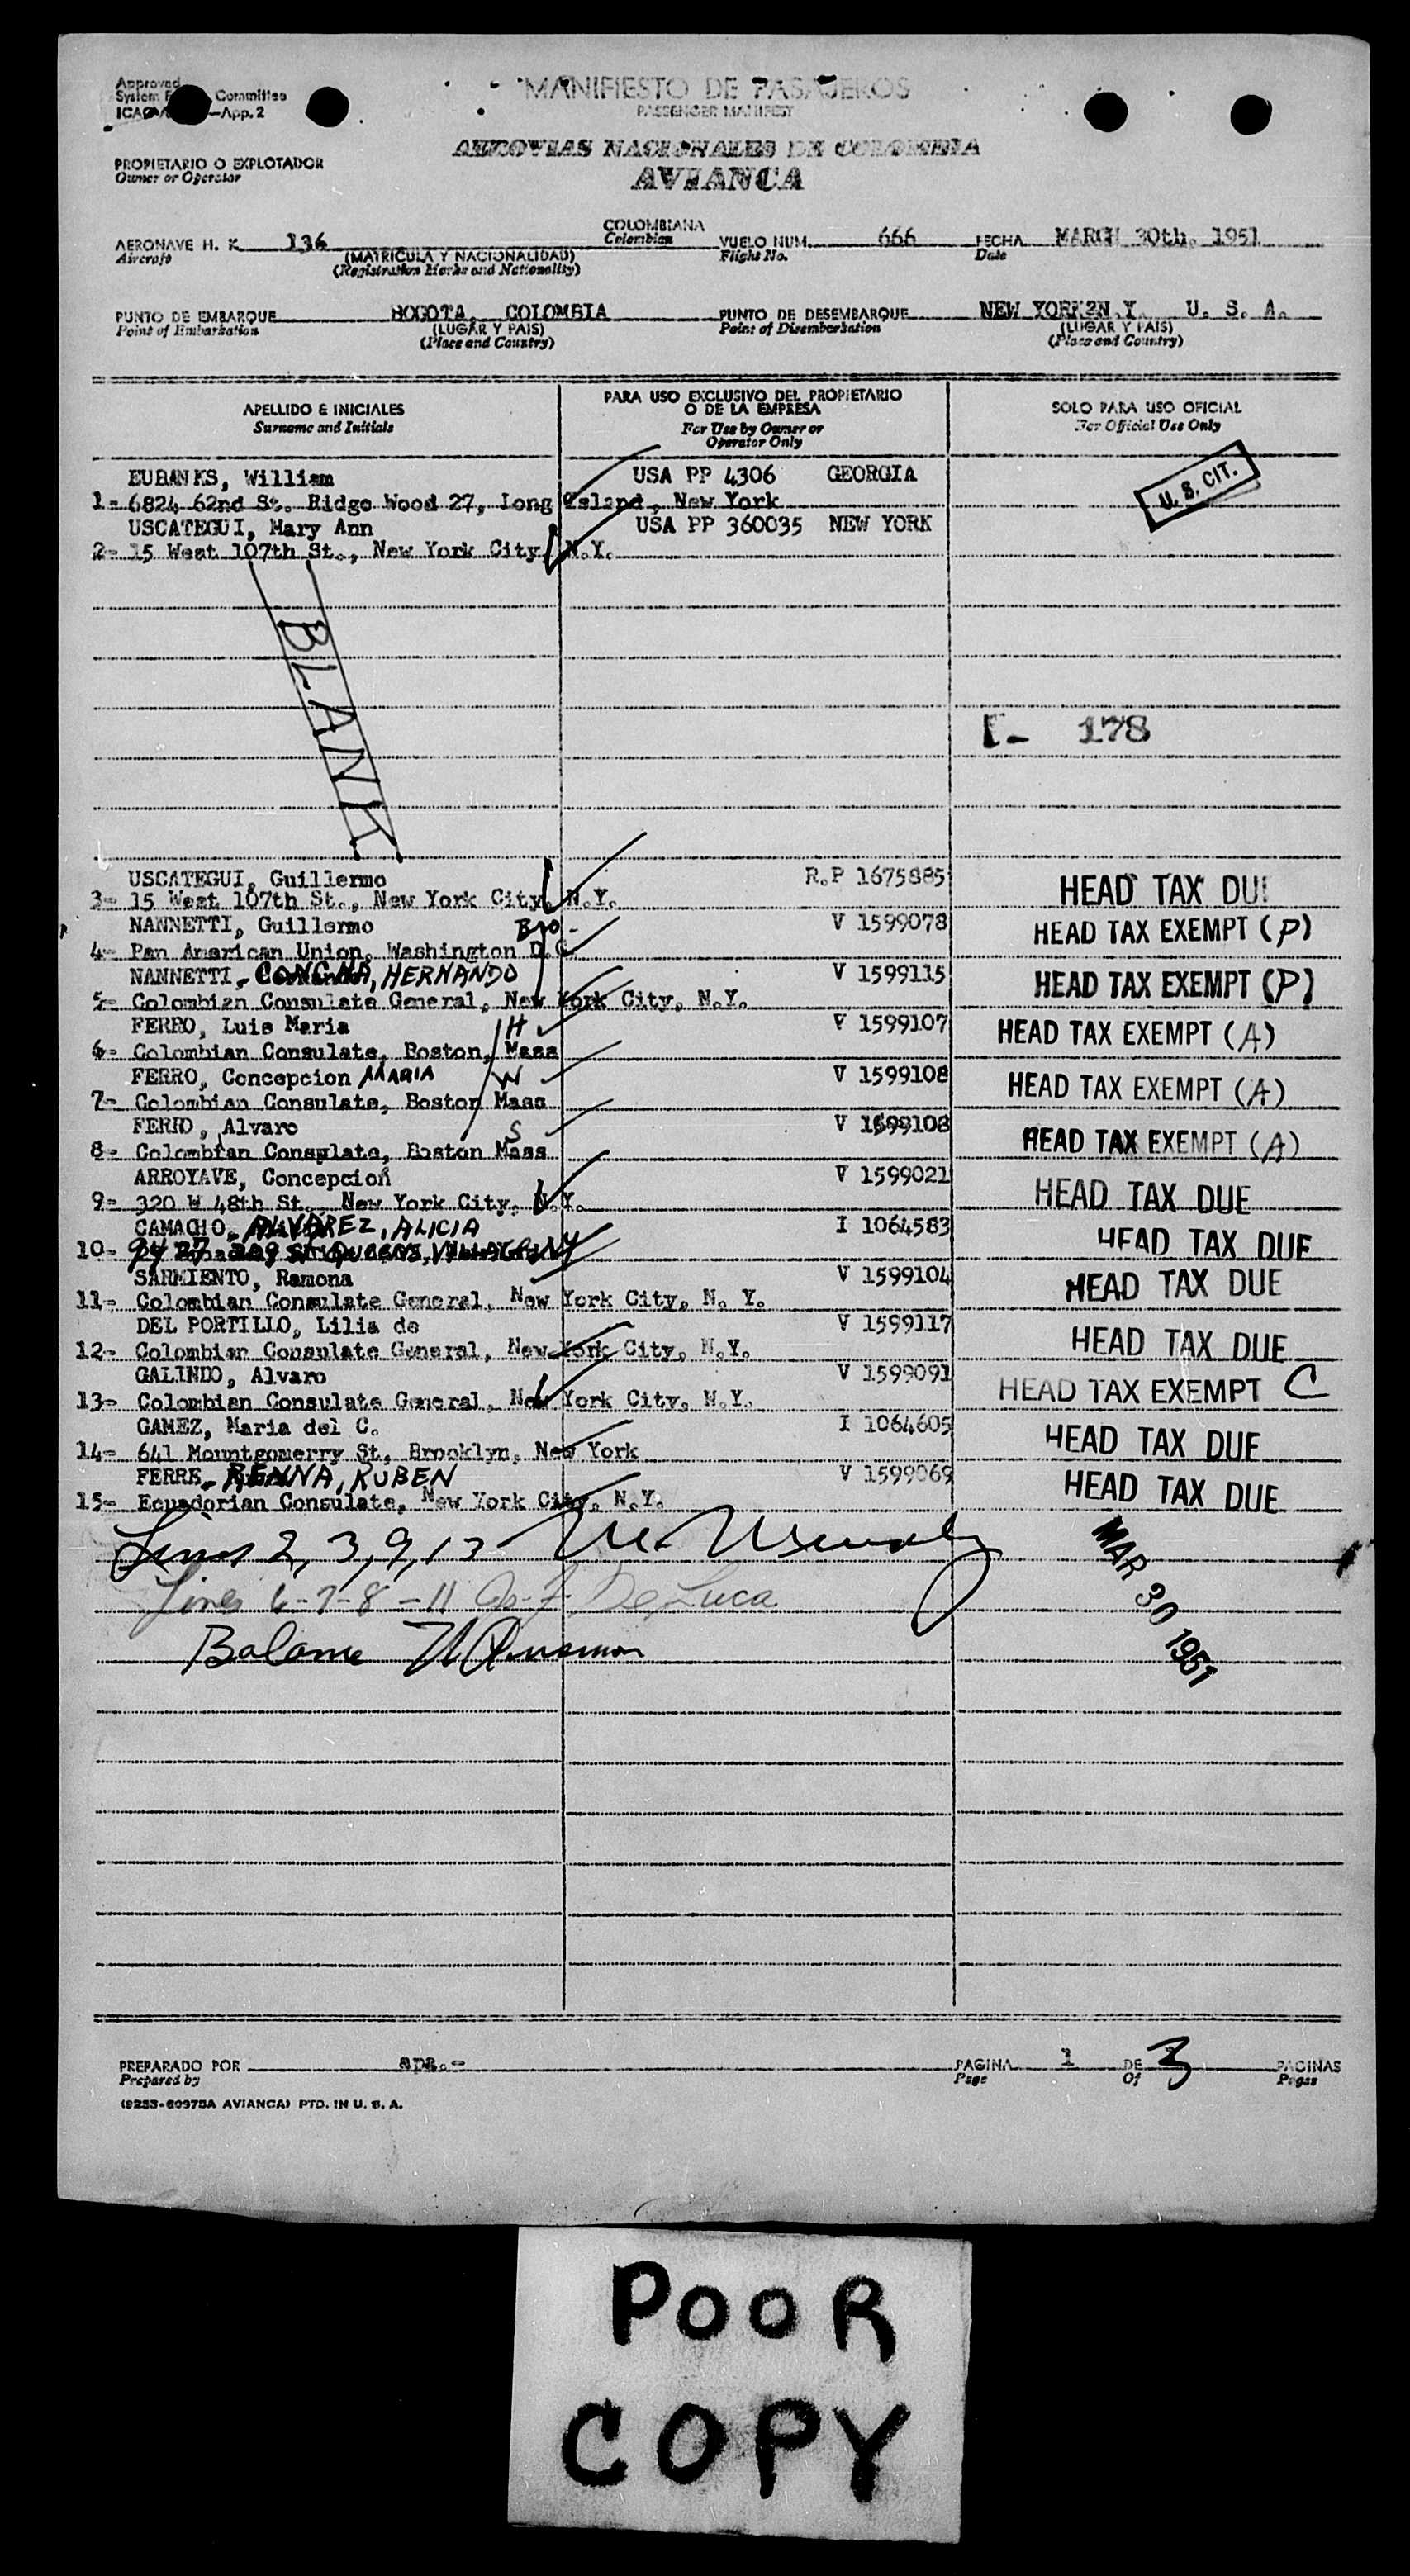 Approved
System Committee
ICAO —App. 2
MANIFIESTO DE PASAJEROS
PASSENGER MANIFEST
AEROVIAS NACIONALES DE COLOMBIA
AVIANCA
PROPIETARIO O EXPLOTADOR
Owner or Operator
AERONAVE H. K. 136 COLOMBIANA VUELO NUM. 666 FECHA MARCH 30th, 1951
Aircraft (MATRICULA Y NACIONALIDAD) Colombian Flight No. Date
(Registration Marks and Nationality)
PUNTO DE EMBARQUE BOGOTA, COLOMBIA PUNTO DE DESEMBARQUE NEW YORK N.Y. U. S. A.
Point of Embarkation (LUGAR Y PAIS) Point of Disembarkation (LUGAR Y PAIS)
(Place and Country) (Place and Country)
APELLIDO E INICIALES PARA USO EXCLUSIVO DEL PROPIETARIO O DE LA EMPRESA SOLO PARA USO OFICIAL
Surname and Initials For Use by Owner or Operator Only For Official Use Only
EUBANKS, William USA PP 4306 GEORGIA U. S. CIT.
1- 6824 62nd St. Ridge Wood 27, Long Island, New York
USCATEGUI, Mary Ann USA PP 360035 NEW YORK
2- 15 West 107th St., New York City, N.Y.
BLANK
I- 178
USCATEGUI, Guillermo R.P 1675885 HEAD TAX DUE
3- 15 West 107th St., New York City, N.Y.
NANNETTI, Guillermo Bro- V 1599078 HEAD TAX EXEMPT (P)
4- Pan American Union, Washington D.C.
NANNETTI- CONCHA, HERNANDO V 1599115 HEAD TAX EXEMPT (P)
5- Colombian Consulate General, New York City, N.Y.
FERRO, Luis Maria H V 1599107 HEAD TAX EXEMPT (A)
6- Colombian Consulate, Boston, Mass
FERRO, Concepcion MARIA W V 1599108 HEAD TAX EXEMPT (A)
7- Colombian Consulate, Boston Mass
FERRO, Alvaro S V 1599108 HEAD TAX EXEMPT (A)
8- Colombian Consulate, Boston Mass
ARROYAVE, Concepcion V 1599021 HEAD TAX DUE
9- 320 W 48th St., New York City, N.Y.
CAMACHO- ALVAREZ, ALICIA I 1064583 HEAD TAX DUE
10- 94 27 209 St QUEENS VILLAGE, NY
SARMIENTO, Ramona V 1599104 HEAD TAX DUE
11- Colombian Consulate General, New York City, N. Y.
DEL PORTILLO, Lilia de V 1599117 HEAD TAX DUE
12- Colombian Consulate General, New York City, N.Y.
GALINDO, Alvaro V 1599091 HEAD TAX EXEMPT C
13- Colombian Consulate General, New York City, N.Y.
GAMEZ, Maria del C. I 1064605 HEAD TAX DUE
14- 641 Mountgomerry St, Brooklyn, New York
FERRE- RENNA, RUBEN V 1599069 HEAD TAX DUE
15- Ecuadorian Consulate, New York City, N.Y.
Lines 2, 3, 9, 13
MAR 30 1951
Lines 6-7-8-11 De Luca
Balance
PREPARADO POR apa.- PAGINA 1 DE 3 PAGINAS
Prepared by Page Of Pages
(9253-60975A AVIANCA) PTD. IN U. S. A.
POOR
COPY